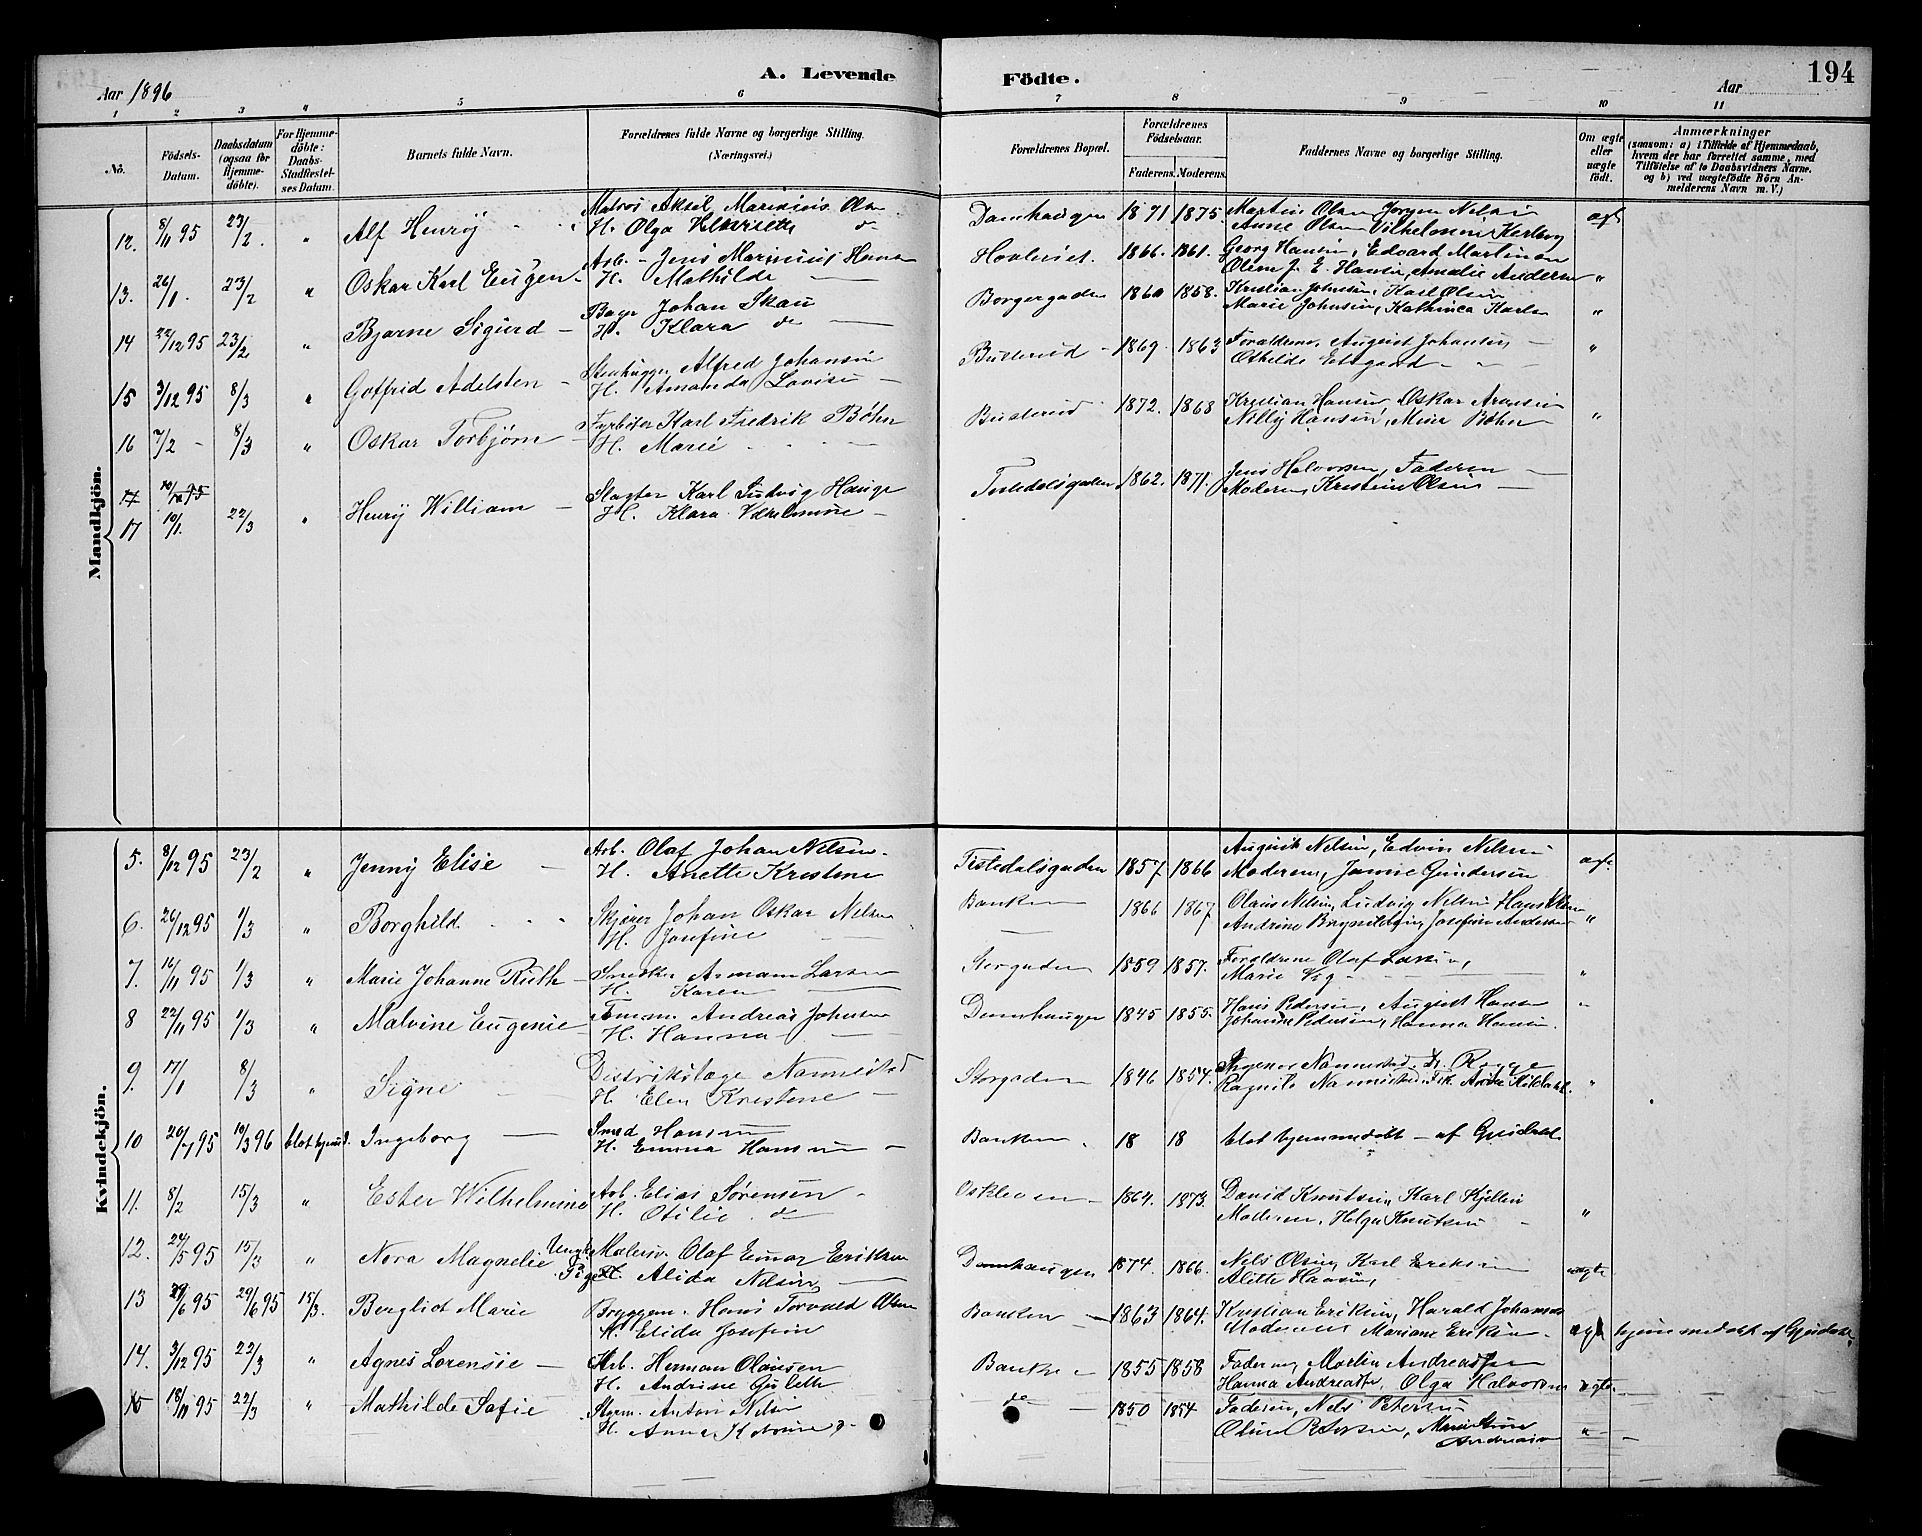 A. Levende Födte.
194
Aar 1896
Aar
1 2 3 4 5 6 7 8 9 10 11
No.
Födsels-Datum.
Daabsdatum (ogsaa for Hjemmedöbte).
For Hjemmedöbte: Daabs-Stadfæstelses Datum.
Barnets fulde Navn.
Forældrenes fulde Navne og borgerlige Stilling. (Næringsvei.)
Forældrenes Bopæl.
Forældrenes Födselsaar.
Faderens. Moderens.
Faddernes Navne og borgerlige Stilling.
Om ægte eller uægte födt.
Anmærkninger (saasom: a) i Tilfælde af Hjemmedaab, hvem der har forrettet samme, med Tilföielse af to Daabsvidners Navne. og b) ved uægtefödte Börn Anmelderens Navn m. V.)
Mandkjön.
12. 8/11 95 23/2. " Alf Henry Matros Aksel Marinius Olsen H. Olga do Damhaugen 1871 1875 Martin Olsen Jørgen Nelsen Anne Olsen Vilhelmine ægt
13. 26/1. 23/2 " Oskar Karl Eugen Arb. Jens Marinius Hansen H. Mathilde 1866. 1861. Georg Hansen, Edvard Martinsen Olsen J. E. Hansen, Amalie Andersen "
14 22/12 95 23/2 " Bjarne Sigurd Johan Skau H. Klara do Borgergaden 1860 1858. Kristian Johnsen, Karl Olsen Marie Johnsen, Kathinca Karlsen "
15 3/12 95 8/3 " Gotfrid Adelsten Stenhugger Alfred Johansen H. Amanda Lovise Buserud 1869. 1863 Forældrene, August Johansen Othilde "
16 7/2 8/3 " Oskar Torbjørn Fyrbøter Karl Fredrik Bøhn H. Marie Buserud 1872. 1868 Kristian Hansen Oskar Arnesen Nelly Hansen, Mina Bøhn "
17 10/12 95
17 10/1. 22/3 " Henry William Slagter Karl Ludvig Hauge H. Klara Vilhelmine Tistedalsgaden 1862. 1871. Jens Halvorsen, Faderen Moderen, Kristine Olsen
Kvindekjön.
5. 8/12 95 23/2 " Jenny Elise Arb. Olaf Johan Nelsen H. Anette Kristene Tistedalsgaden 1857 1866 August Nelsen, Edvin Nelsen Moderen, Jannie Gundersen ægt
6. 26/12 95 1/3 " Borghild Skjærer Johan Oskar Nelsen H. Josefine Banken 1866 1867 Olaus Nelsen, Ludvig Nelsen Andrine Brynildsen, Josefine Andersen "
7. 16/11 95 1/3 " Marie Johanne Ruth Snedker Armann Larsen H. Karen Storgaden 1859 1857. Forældrene Olaf Larsen, Marie "
8 22/11 95 1/3 " Malvine Eugenie Tømm. Andreas Johnsen H. Hanna Damhaugen 1845 1855. Hans Pedersen, August Hansen Johanne Pedersen, Hanna Hansen. "
9. 17/1 8/3 " Signe Distriktslæge Nannestad H. Elen Kristene Storgaden 1846 1854. Nannestad, Dr. Rogge Ragnild Nannestad, Frk. "
10 20/7 95 10/3 96 blot hjemd. Ingeborg Smed Hansen H. Emma Hansen Banken 18 18 blot hjemmedøbt af
11. 8/2 15/3 " Ester Wilhelmine Arb. Elias Sørensen H. Otilie do Oskleven 1864. 1873. David Knutsen, Karl Kjellen Moderen, Helga Knutsen "
12. 24/5 95 15/3 " Nora Magnelie Ungk. Malersv. Olaf Einar Eriksen Pige Alida Nelsen Damhaugen 1874. 1866. Nels Olsen, Karl Eriksen Alette Hansen, uægte
13 29/6 95 29/6 95 15/3. Bergliot Marie Bryggem. Hans Torvald Olsen H. Elida Josefine Banken 1863 1864. Kristian Eriksen, Harald Johansen Moderen Mariane Eriksen ægte hjemmedøbt af
14. 3/12 95 22/3 " Agnes Lorensie Arb. Herman Olausen H. Andrine Banken 1855 1858 Faderen, Martin Andreassen Hanna Andreassen, Olga Halvorsen ægte
15 18/11 95 22/3 " Mathilde Sofie Anton Nelsen H. Anne do 1850 1854 Faderen, Nels Petersen Petersen, "